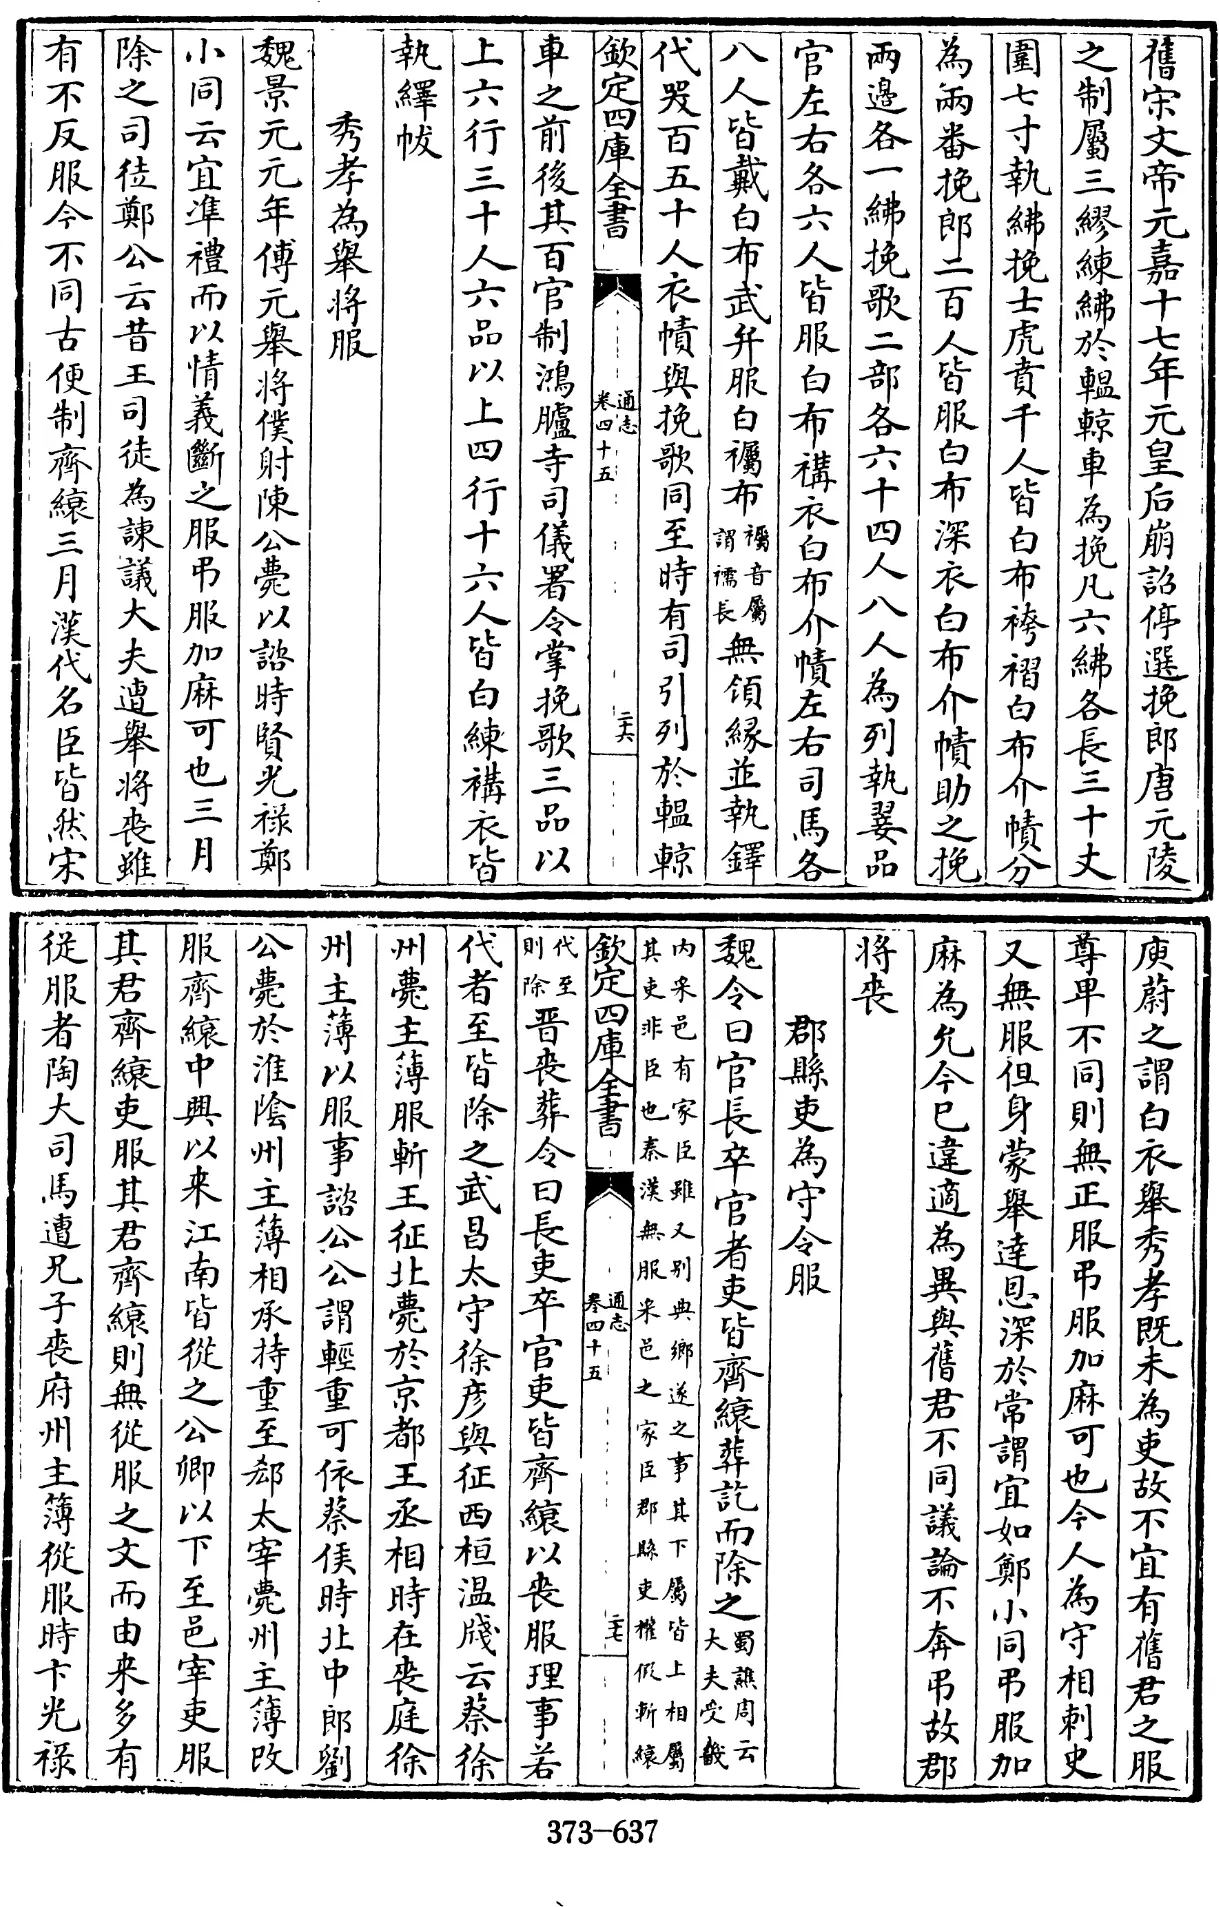 舊宋文帝元嘉十七年元皇后崩詔停選挽郎唐元陵
之制屬三繆練紼於轀輬車為挽凡六紼各長三十丈
圍七寸執紼挽士虎賁千人皆白布袴褶白布介幘分
為兩番挽郎二百人皆服白布深衣白布介幘助之挽
兩邊各一紼挽歌二部各六十四人八人為列執翣品
官左右各六人皆服白布褠衣白布介幘左右司馬各
八人皆戴白布武弁服白襡布襡音屬謂襦長無領緣並執鐸
代哭百五十人衣幘與挽歌同至時有司引列於轀輬
欽定四庫全書
通志
卷四十五
二十六
車之前後其百官制鴻臚寺司儀署令掌挽歌三品以
上六行三十人六品以上四行十六人皆白練褠衣皆
執繹帗
秀孝為舉將服
魏景元元年傅元舉將僕射陳公薨以諮時賢光祿鄭
小同云宜準禮而以情義斷之服弔服加麻可也三月
除之司徒鄭公云昔王司徒為諫議大夫遭舉將喪雖
有不反服今不同古便制齊縗三月漢代名臣皆然宋
庾蔚之謂白衣舉秀孝既未為吏故不宜有舊君之服
尊卑不同則無正服弔服加麻可也今人為守相刺史
又無服但身蒙舉達恩深於常謂宜如鄭小同弔服加
麻為允今已違適為異與舊君不同議論不奔弔故郡
將喪
郡縣吏為守令服
魏令曰官長卒官者吏皆齊縗葬訖而除之蜀譙周云大夫受畿
內采邑有家臣雖又別典鄉遂之事其下屬皆上相屬
其吏非臣也秦漢無服采邑之家臣郡縣吏權假斬縗
欽定四庫全書
通志
卷四十五
二十七
代至則除晉喪葬令曰長吏卒官吏皆齊縗以喪服理事若
代者至皆除之武昌太守徐彥與征西桓温牋云蔡徐
州薨主薄服斬王征北薨於京都王丞相時在喪庭徐
州主薄以服事諮公公謂輕重可依蔡侯時北中郎劉
公薨於淮陰州主薄相承持重至郗太宰薨州主薄改
服齊縗中興以來江南皆從之公卿以下至邑宰吏服
其君齊縗吏服其君齊縗則無從服之文而由來多有
從服者陶大司馬遭兄子喪府州主薄從服時卞光祿
373-637